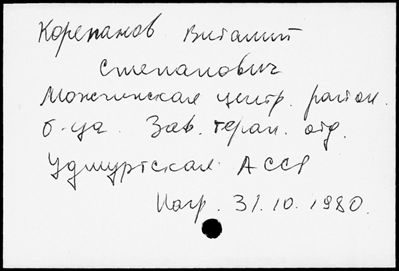 Корепанов Виталий
Степанович
Можгинская центр. район.
б-ца. Зав. терап. отд.
Удмуртская АССР
Нагр. 31.10.1980.